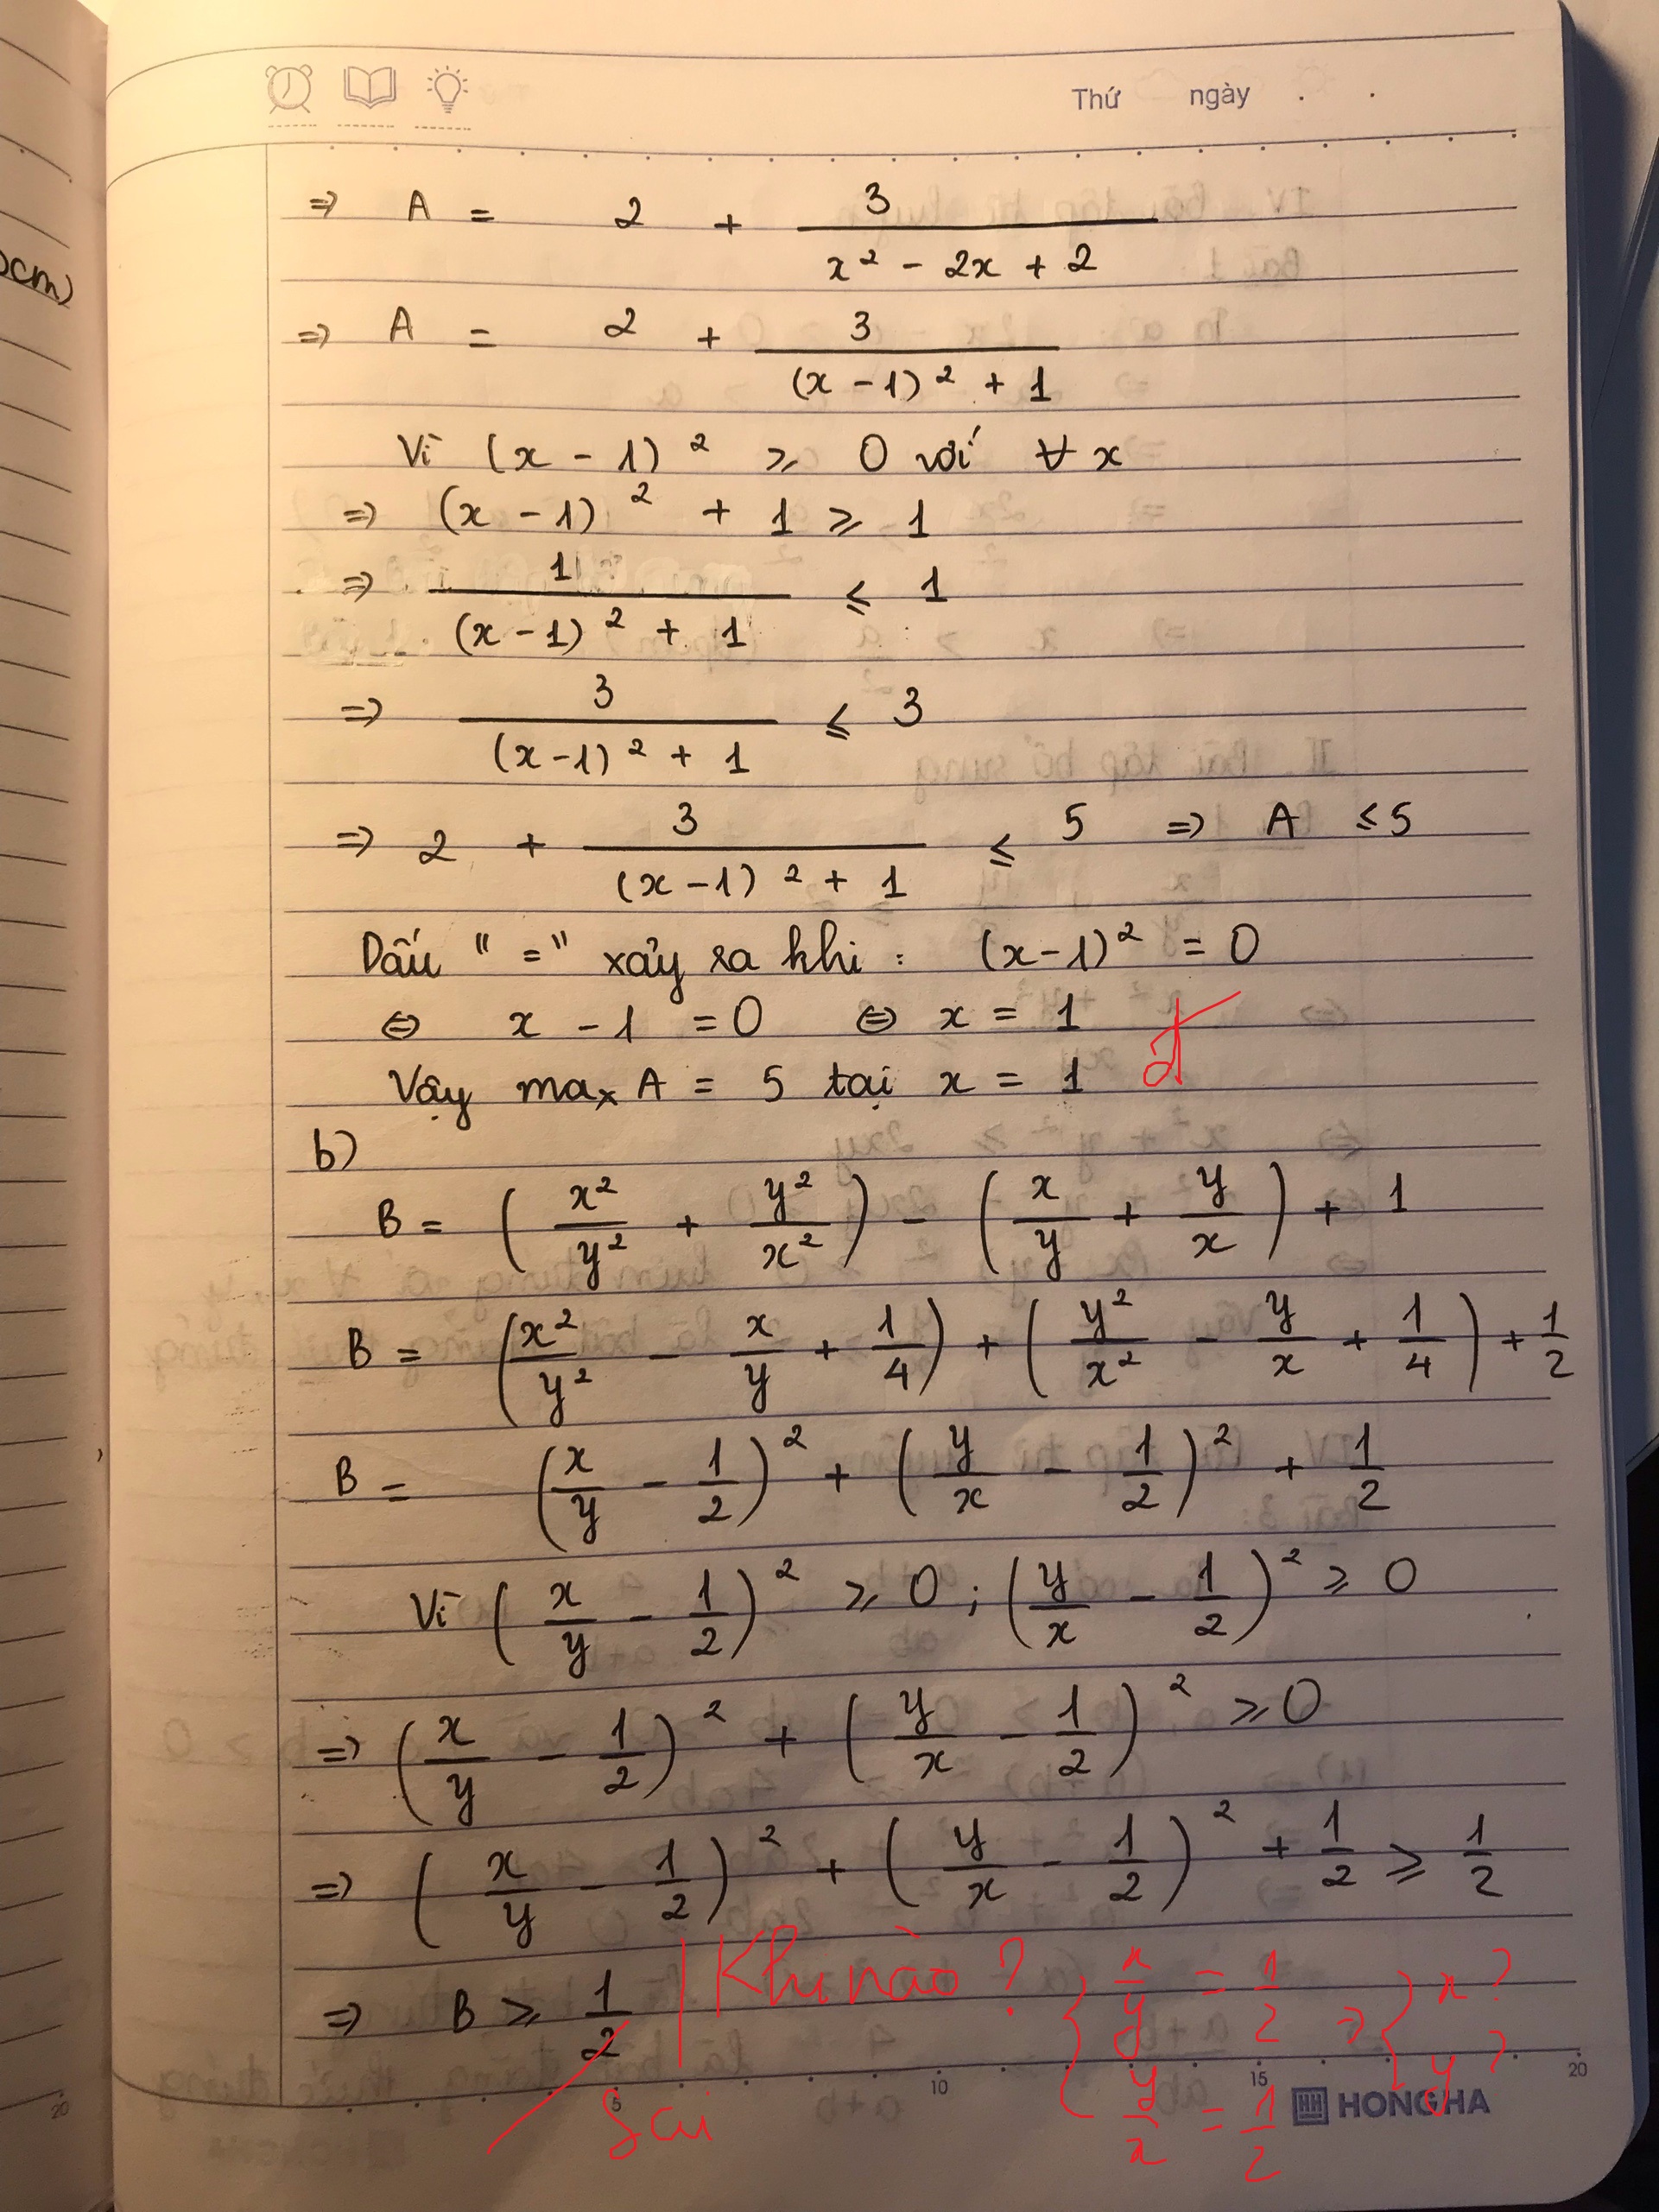 Thứ ngày . .
ocm)
=> A = 2 + 3/(x² - 2x + 2)
=> A = 2 + 3/((x - 1)² + 1)
Vì (x - 1)² ≥ 0 với ∀ x
=> (x - 1)² + 1 ≥ 1
=> 1/((x - 1)² + 1) ≤ 1
=> 3/((x - 1)² + 1) ≤ 3
=> 2 + 3/((x - 1)² + 1) ≤ 5 => A ≤ 5
Dấu "=" xảy ra khi : (x - 1)² = 0
⇔ x - 1 = 0 ⇔ x = 1
Vậy max A = 5 tại x = 1 đ
b)
B = (x²/y² + y²/x²) - (x/y + y/x) + 1
B = (x²/y² - x/y + 1/4) + (y²/x² - y/x + 1/4) + 1/2
B = (x/y - 1/2)² + (y/x - 1/2)² + 1/2
Vì (x/y - 1/2)² ≥ 0 ; (y/x - 1/2)² ≥ 0
=> (x/y - 1/2)² + (y/x - 1/2)² ≥ 0
=> (x/y - 1/2)² + (y/x - 1/2)² + 1/2 ≥ 1/2
=> B ≥ 1/2 | Khi nào ? { x/y = 1/2 => { x ?
Sai { y/x = 1/2 { y ?
5 10 15 20
20
HONG HA